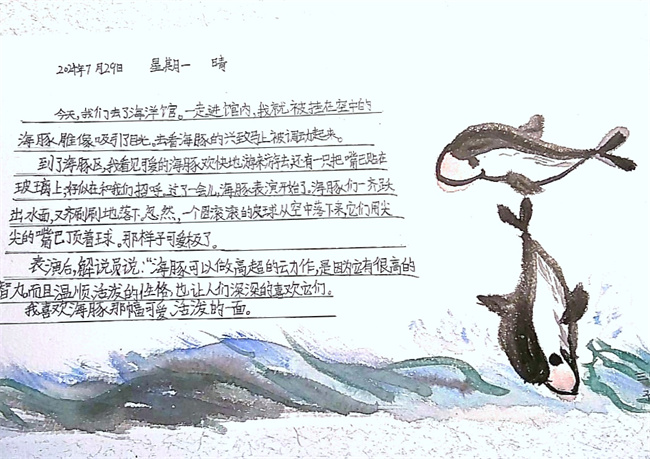 2024年7月29日 星期一 晴
今天,我们去了海洋馆。一走进馆内,我就被挂在空中的
海豚雕像吸引了目光。去看海豚的兴致马上被调动起来。
到了海豚区,我看见可爱的海豚欢快地游来游去还有一只把嘴巴贴在
玻璃上好似在和我们招呼。过了一会儿,海豚表演开始了。海豚们一齐跃
出水面,又齐刷刷地落下。忽然,一个圆滚滚的皮球从空中落下来,它们用尖
尖的嘴巴顶着球。那样子可爱极了。
表演后,解说员说:“海豚可以做高超的动作,是因为它有很高的
智力,而且温顺、活泼的性格,也让人们深深的喜欢它们。
我喜欢海豚那幅可爱、活泼的一面。